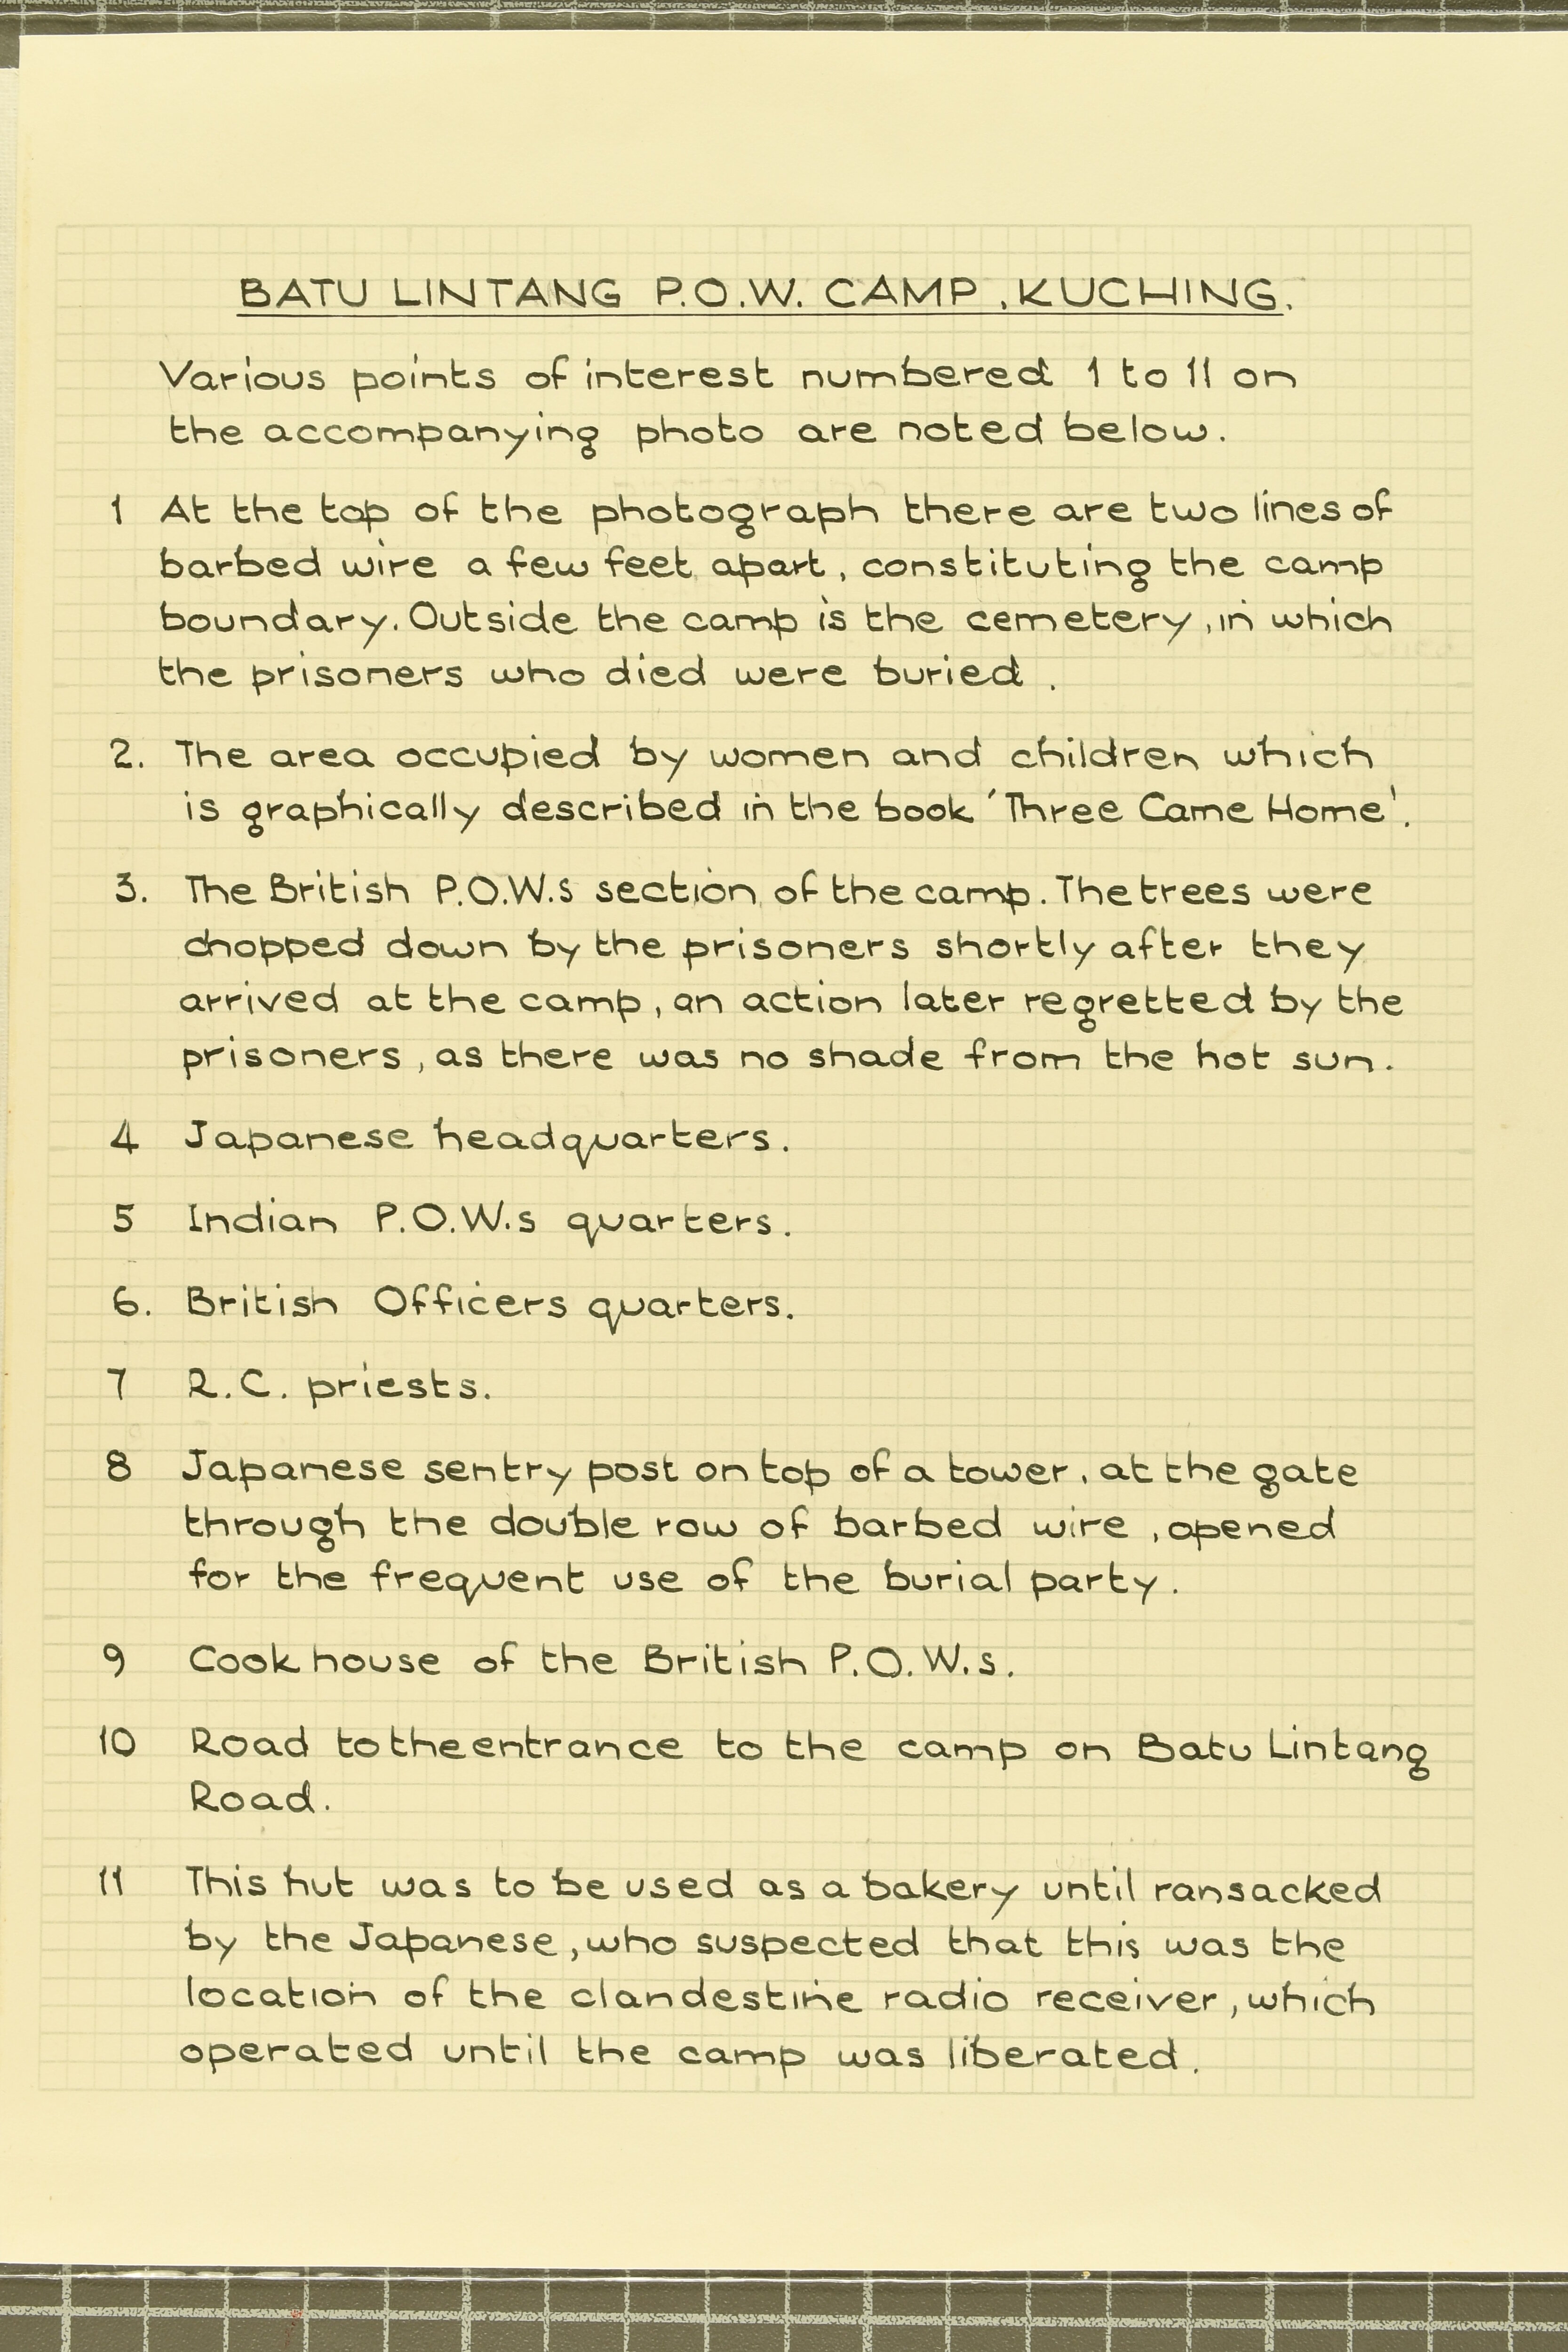 BATU LINTANG P.O.W. CAMP, KUCHING.
Various points of interest numbered 1 to 11 on
the accompanying photo are noted below.
1 At the top of the photograph there are two lines of
barbed wire a few feet apart, constituting the camp
boundary. Outside the camp is the cemetery, in which
the prisoners who died were buried.
2. The area occupied by women and children which
is graphically described in the book 'Three Came Home'.
3. The British P.O.W.s section of the camp. The trees were
chopped down by the prisoners shortly after they
arrived at the camp, an action later regretted by the
prisoners, as there was no shade from the hot sun.
4 Japanese headquarters.
5 Indian P.O.W.s quarters.
6. British Officers quarters.
7 R.C. priests.
8 Japanese sentry post on top of a tower, at the gate
through the double row of barbed wire, opened
for the frequent use of the burial party.
9 Cook house of the British P.O.W.s.
10 Road to the entrance to the camp on Batu Lintang
Road.
11 This hut was to be used as a bakery until ransacked
by the Japanese, who suspected that this was the
location of the clandestine radio receiver, which
operated until the camp was liberated.